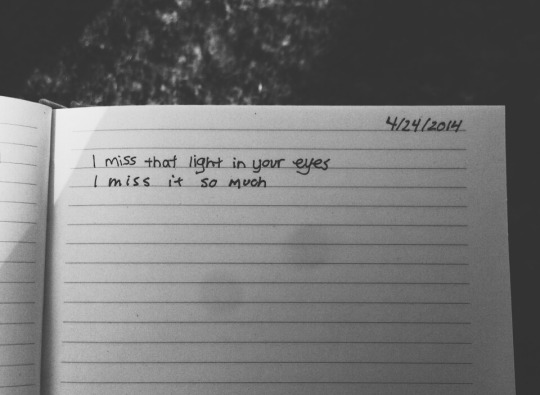 4/24/2014
I miss that light in your eyes
I miss it so much